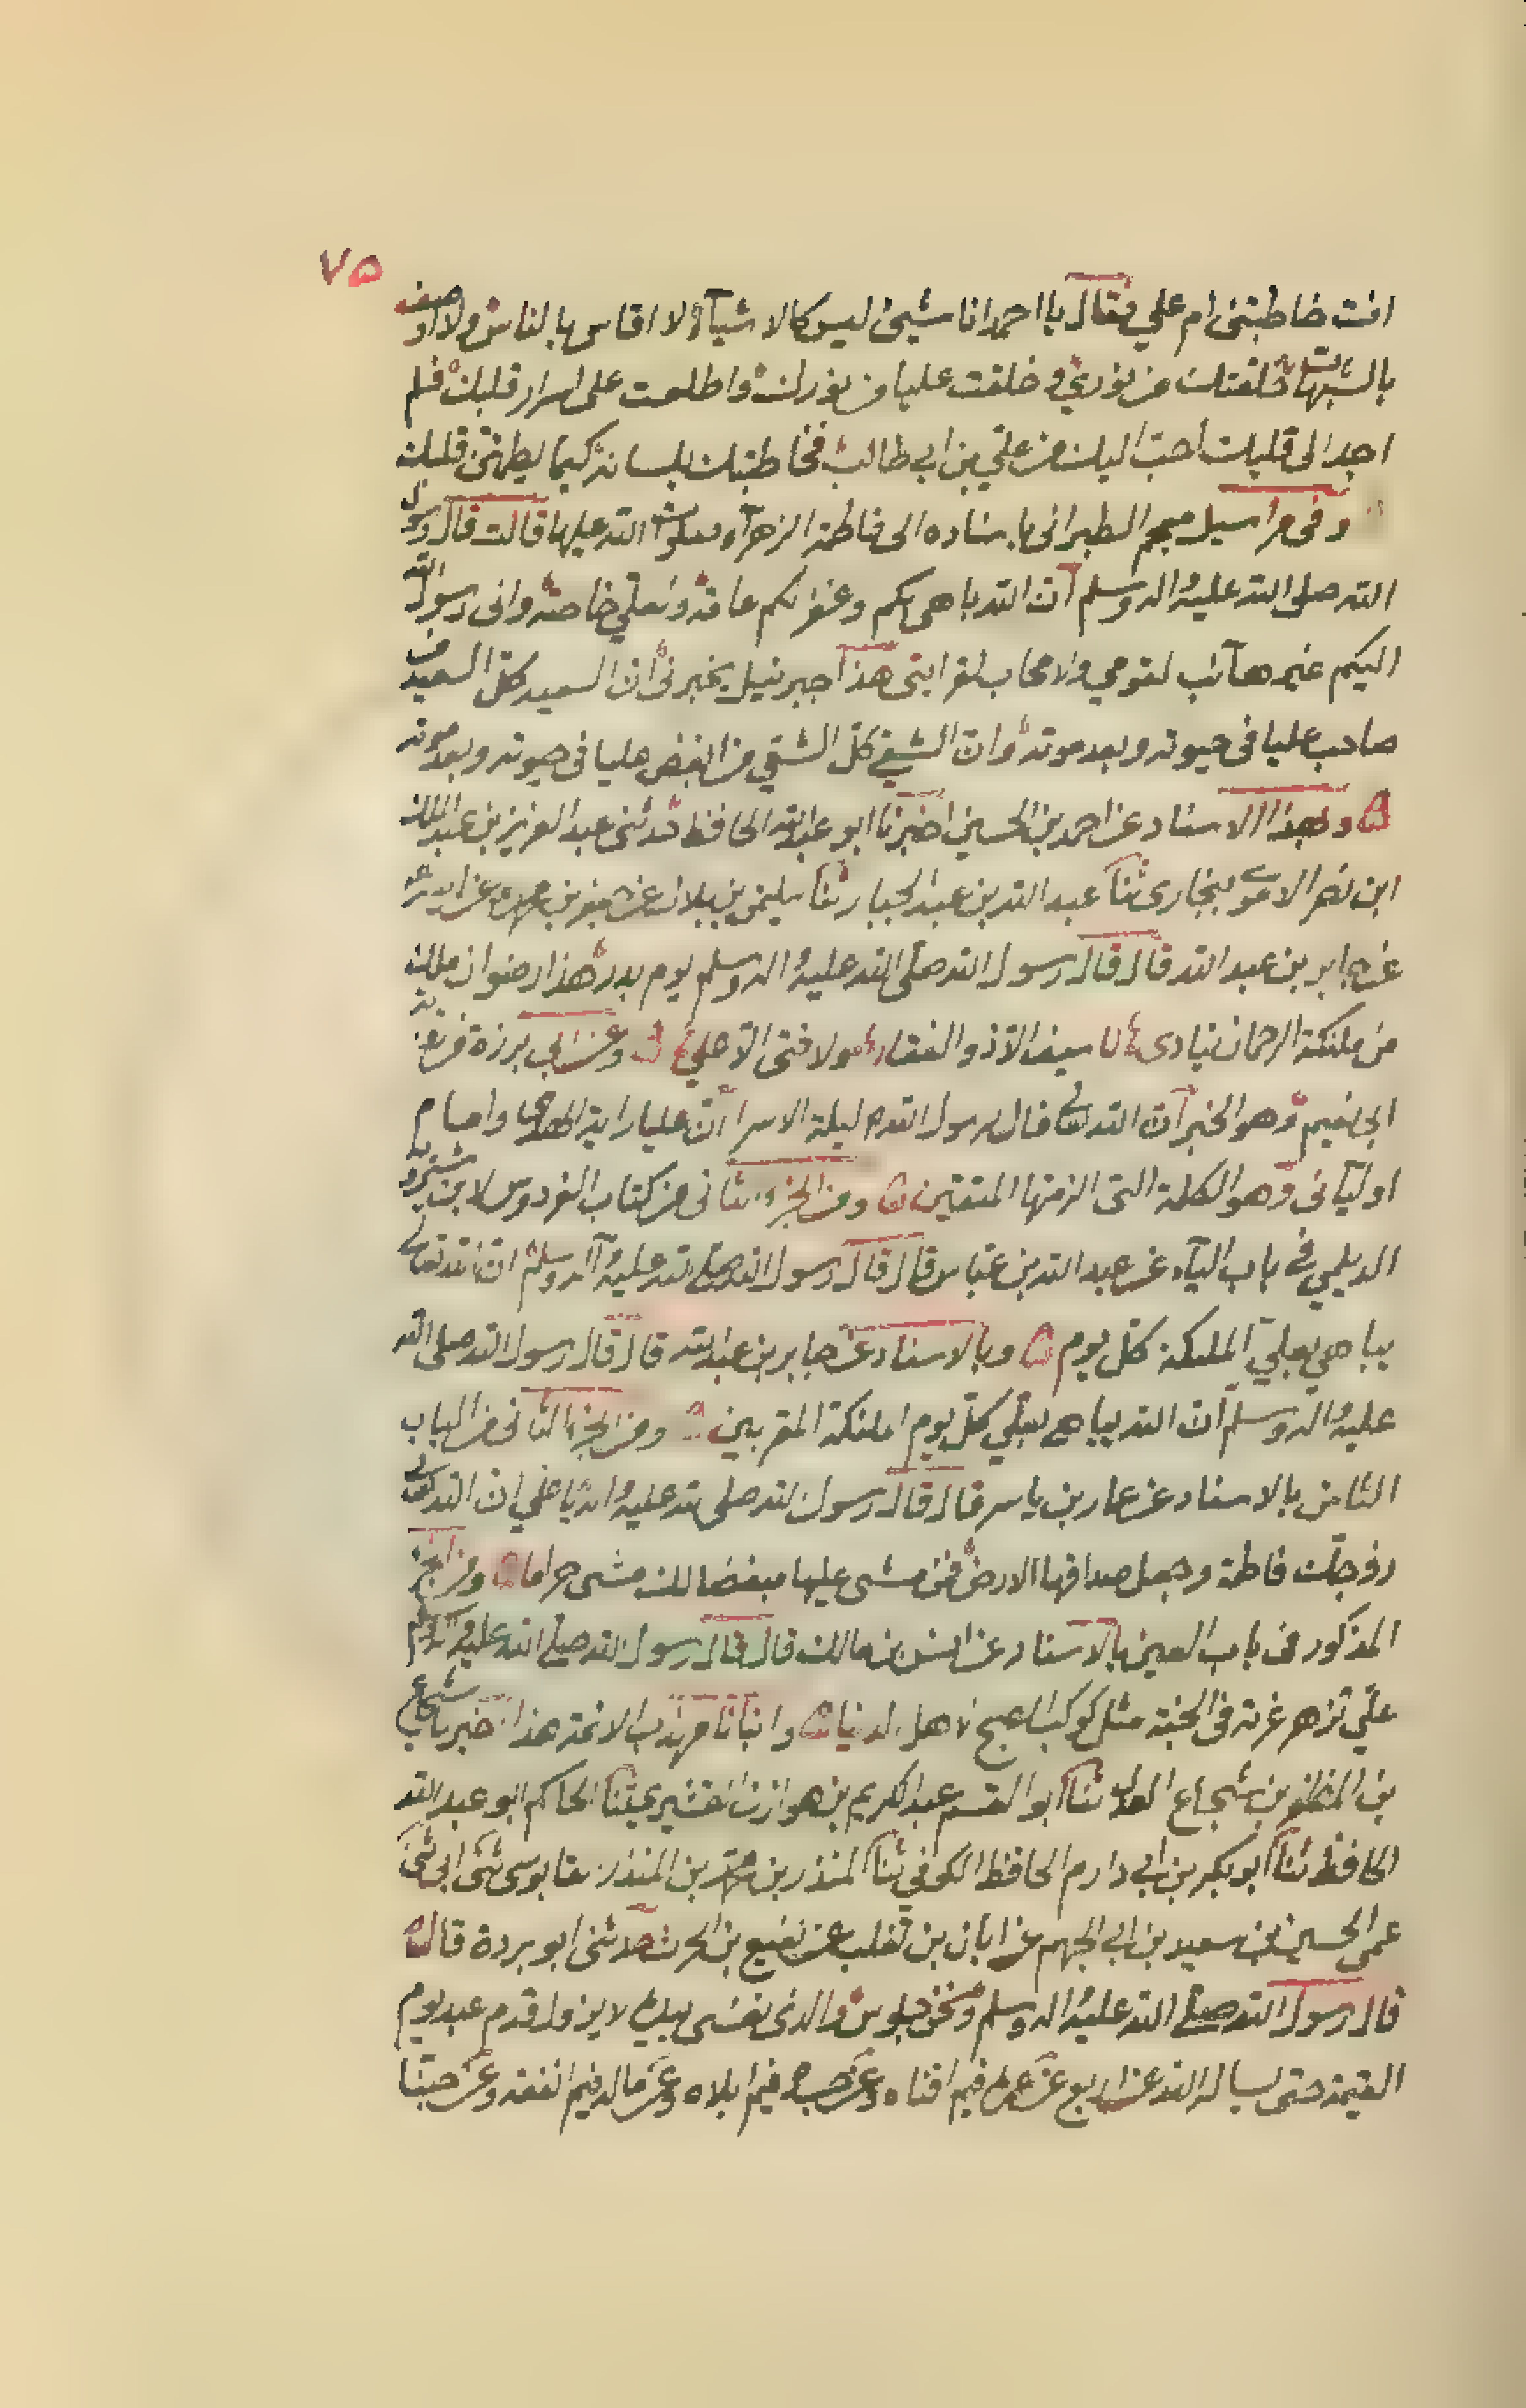 ٧٥
انت خاطبتنى ام علي فقال يا احمد انا شيئ ليس كالاشيآء لا اقاس بالناس ولا اوصف
بالشبهات خلقتك من نوري و خلقت عليا من نورك و اطلعت على اسرار قلبك فلم
اجد الى قلبك احبّ اليك من عليّ بن ابي طالب فخاطبتك بلسانه كيما يطمئن قلبك
وفى مراسيل معجم الطبرانى باسناده الى فاطمة الزهرآء صلوات الله عليها قالت قال رسول
الله صلى الله عليه واله وسلم ان الله باهى بكم وغفر لكم عامة ولعلي خاصة وانى رسول الله
اليكم غير هآئب لقومي ولا محاب لقرابتى هذا جبرئيل يخبرنى ان السعيد كلّ السعيد من
صاحب عليا فى حيوته وبعد موته وان الشقي كلّ الشقي من ابغض عليا فى حيوته وبعد موته
وبهذا الاسناد عن احمد بن الحسين اخبرنا ابو عبد الله الحافظ حدثنى عبد العزيز بن عبد الملك
ابن نصر الاموى ببخارى ثنا عبد الله بن عبد الجبار ثنا سليمن بن بلال عن جعفر بن محمد عن ابيه
عن جابر بن عبد الله قال قال رسول الله صلى الله عليه واله وسلم يوم بدر هذا رضوان ملك
من ملئكة الرحمان ينادى لا سيف الا ذو الفقار ولا فتى الا علي وعن ابى برزة
ابى نعيم وهو الخبر ان الله تعالى قال لرسول الله ليلة الاسرا ان عليا راية الهدى وامام
اوليآئى وهو الكلمة التى الزمتها المتقين ومن الجزء الثانى من كتاب الفردوس لابن شيرويه
الديلمي فى باب اليآء عن عبد الله بن عبّاس قال قال رسول الله صلى الله عليه واله وسلم ان الله تعالى
يباهي بعلي الملئكة كلّ يوم وبالاسناد عن جابر بن عبد الله قال قال رسول الله صلى الله
عليه واله وسلم ان الله يباهي بعلي كلّ يوم الملئكة المقربين ومن الجزء الثانى من الباب
الثامن بالاسناد عن عمار بن ياسر قال قال رسول الله صلى الله عليه واله يا علي ان الله تعالى
زوجك فاطمة وجعل صداقها الارض فمن مشى عليها مبغضا لك مشى حراما ومن الجزء
المذكور فى باب العين بالاسناد عن انس بن مالك قال قال رسول الله صلى الله عليه واله وسلم
عليّ تزهر غرته فى الجنة مثل كوكب الصبح لاهل الدنيا وانبانا مهذب الائمة هذا اخبرنا شجاع
بن المظفر بن شجاع العدل ثنا ابو القسم عبد الكريم بن هوازن القشيرى ثنا الحاكم ابو عبد الله
الحافظ ثنا ابو بكر بن ابي دارم الحافظ الكوفي ثنا المنذر بن محمد بن المنذر القابوسى ثنى ابى ثنى
عمى الحسين بن سعيد بن ابي الجهم عن ابان بن تغلب عن نفيع بن الحرث حدثنى ابو بردة قال
قال رسول الله صلى الله عليه واله وسلم ونحن جلوس والذى نفسى بيده لا يزول قدم عبد يوم
القيمة حتى يساله الله عن اربع عن عمره فيم افناه وعن جسده فيم ابلاه وعن ماله فيم انفقه وعن حبنا